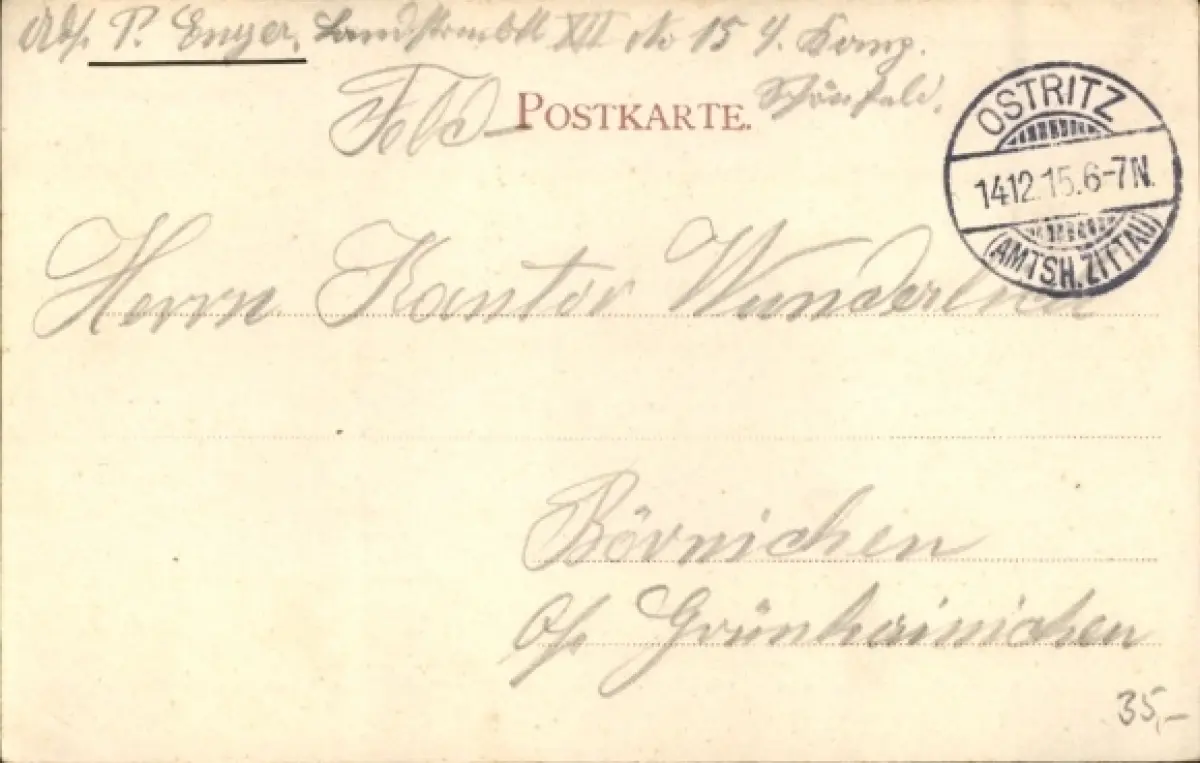 Abs. P. Enger, Landstrmbtl XII No 15 4. Komp.
Schönfeld.
Feld- POSTKARTE.
OSTRITZ
14.12.15.6-7N.
(AMTSH. ZITTAU)
Herrn Kantor Wunderlich
Börnichen
b/ Grünhainichen
35,-